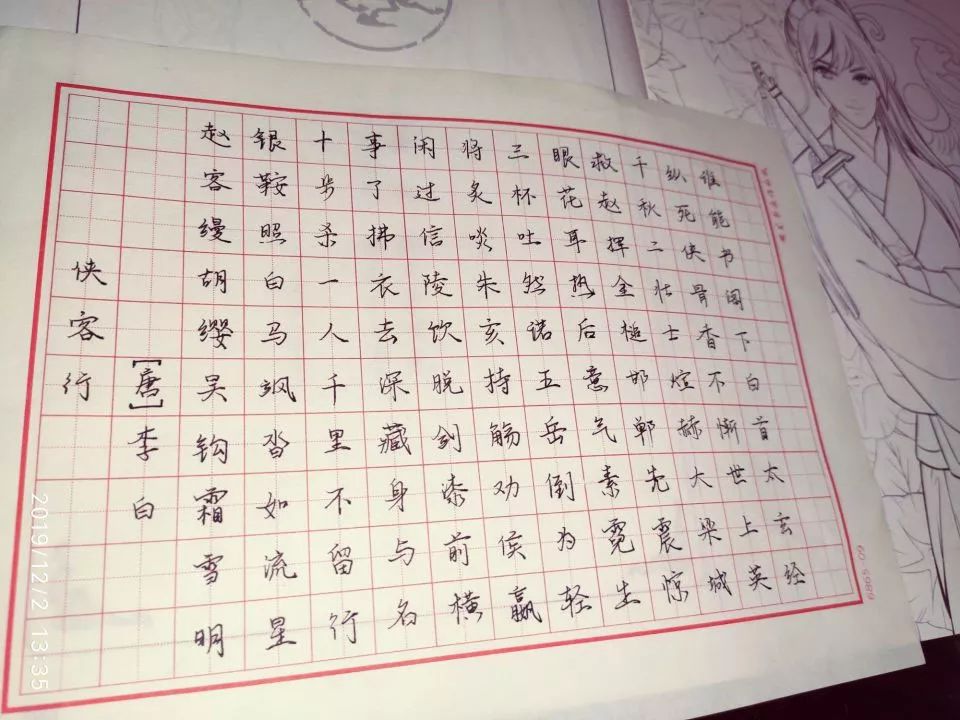 侠客行
[唐]李白
赵客缦胡缨吴钩霜雪明
银鞍照白马飒沓如流星
十步杀一人千里不留行
事了拂衣去深藏身与名
闲过信陵饮脱剑膝前横
将炙啖朱亥持觞劝侯嬴
三杯吐然诺五岳倒为轻
眼花耳热后意气素霓生
救赵挥金槌邯郸先震惊
千秋二壮士煊赫大梁城
纵死侠骨香不惭世上英
谁能书阁下白首太玄经
6865-09
2019/12/2 13:35